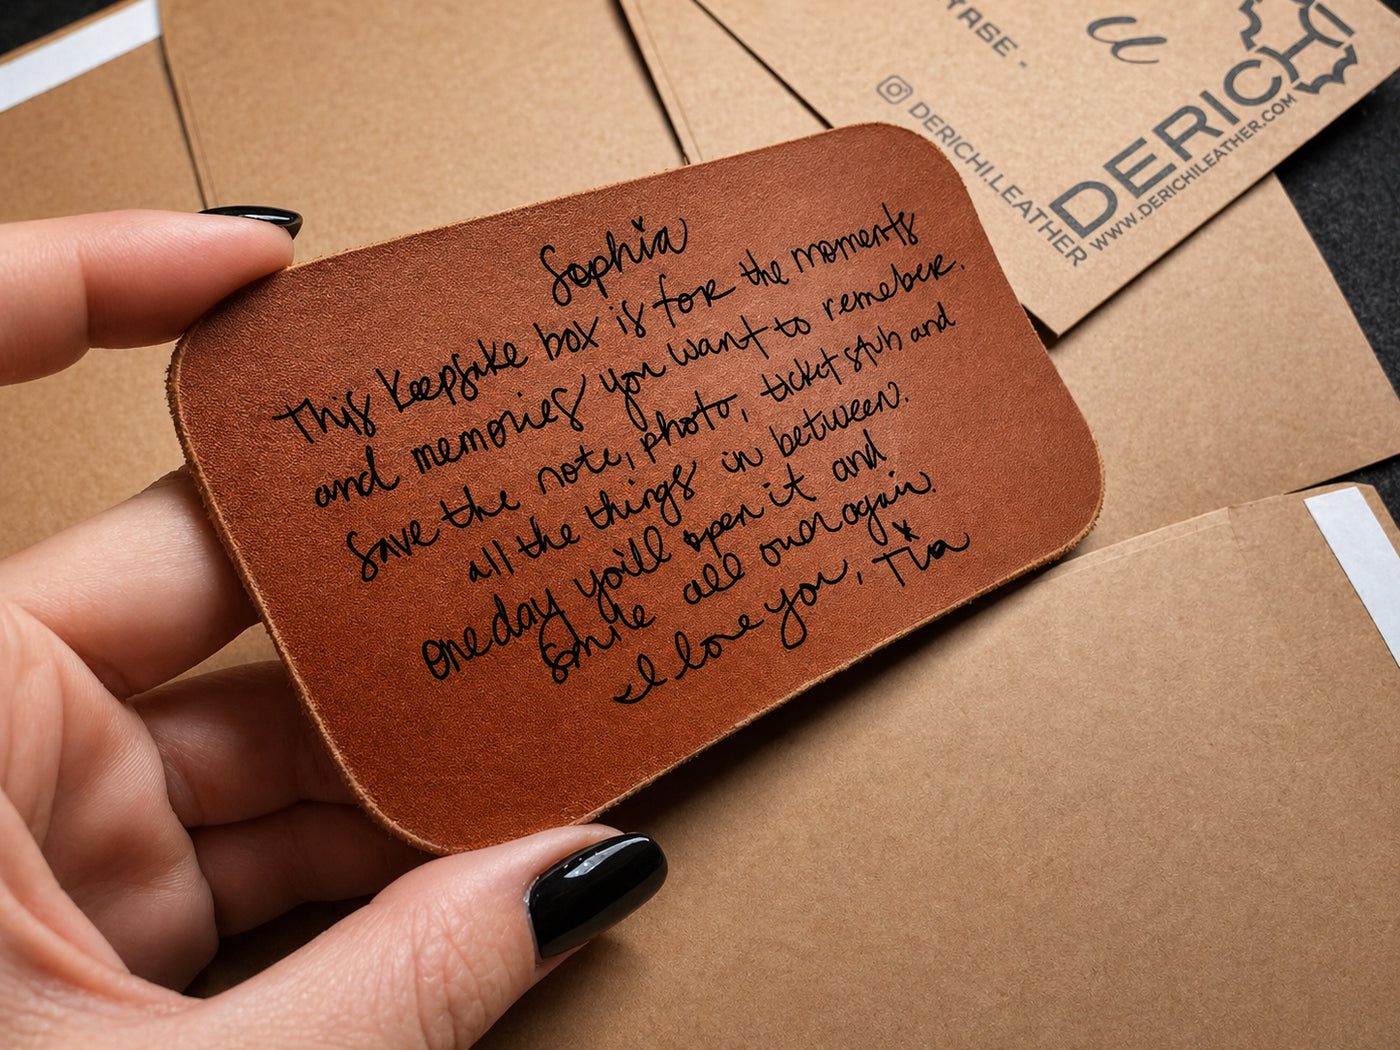 Sophia
This keepsake box is for the moments
and memories you want to remeber.
save the note, photo, ticket stub and
all the things in between.
one day you'll open it and
smile all over again.
I love you, Tia
DERICHI
WWW.DERICHILEATHER.COM
DERICHI.LEATHER